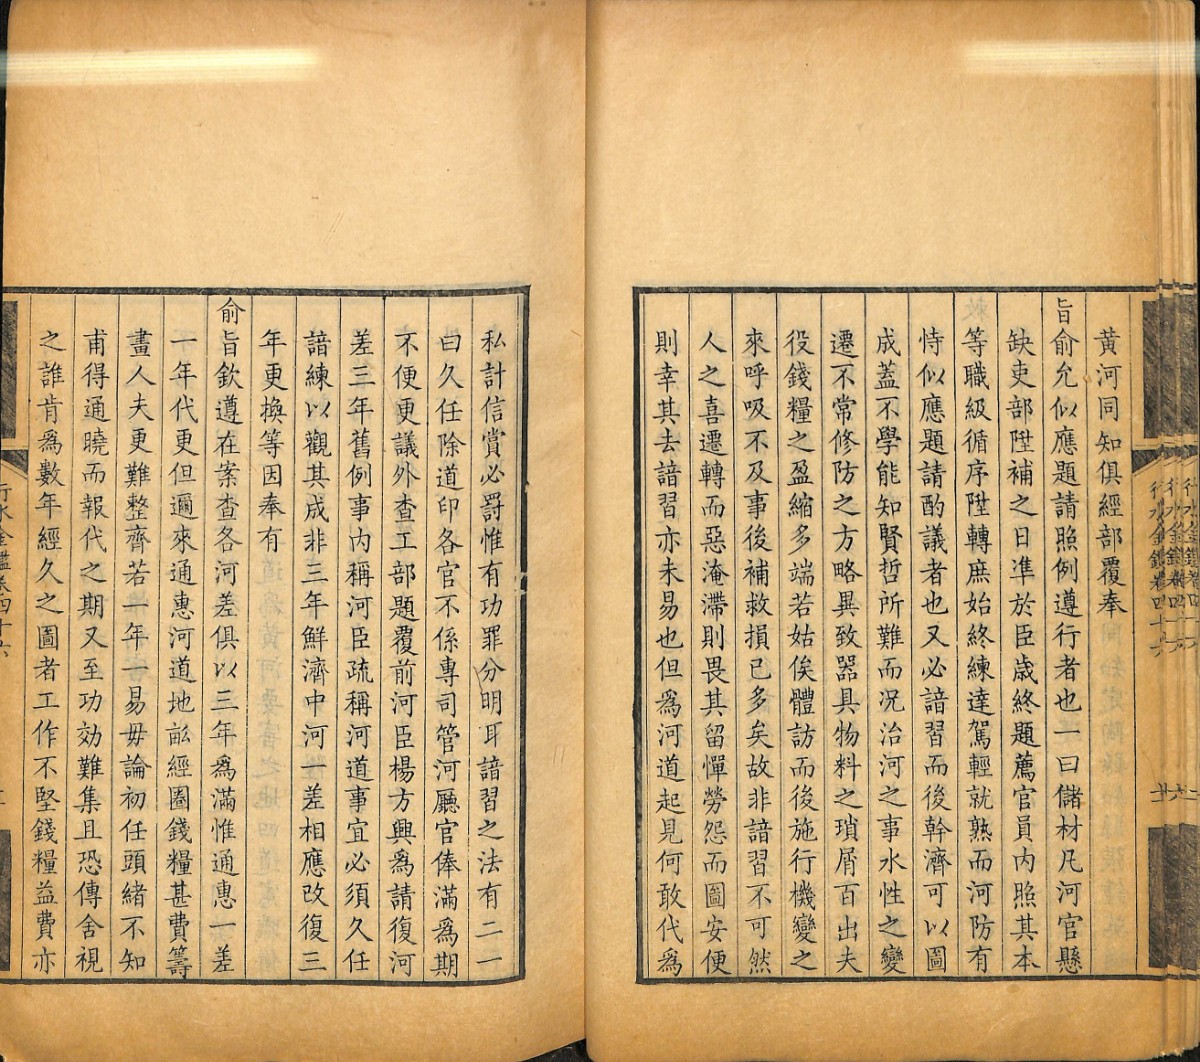 黄河同知俱經部覆奉
旨俞允似應題請照例遵行者也一曰儲材凡河官懸
缺吏部陞補之日凖於臣歳終題薦官員内照其本
等職級循序陞轉庶始終練達駕輕就熟而河防有
恃似應題請酌議者也又必諳習而後幹濟可以圖
成蓋不學能知賢哲所難而况治河之事水性之變
遷不常修防之方略異致噐具物料之瑣屑百出夫
役錢糧之盈縮多端若姑俟體訪而後施行機變之
來呼吸不及事後補救損已多矣故非諳習不可然
人之喜遷轉而惡淹滯則畏其留憚勞怨而圖安便
則幸其去諳習亦未易也但為河道起見何敢代為
私計信賞必罰惟有功罪分明耳諳習之法有二一
曰久任除道印各官不係專司管河廳官俸滿為期
不便更議外查工部題覆前河臣楊方興為請復河
差三年舊例事内稱河臣疏稱河道事宜必須久任
諳練以觀其成非三年鮮濟中河一差相應改復三
年更換等因奉有
俞旨欽遵在案查各河差俱以三年為滿惟通惠一差
一年代更但邇來通惠河道地畆經圈錢糧甚費籌
畫人夫更難整齊若一年一易毋論初任頭緒不知
甫得通曉而報代之期又至功効難集且恐傳舍視
之誰肯為數年經久之圖者工作不堅錢糧益費亦
行水金鑑卷四十六